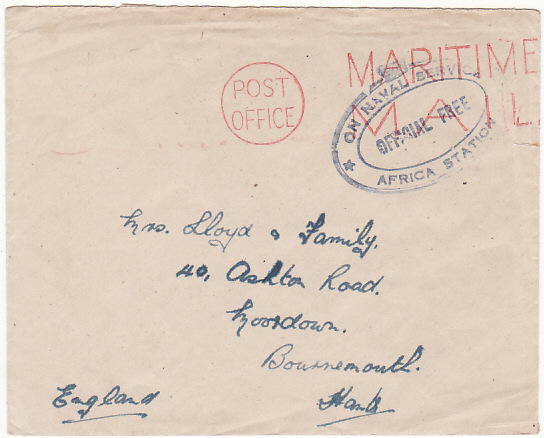 POST
OFFICE
MARITIME
MAIL
ON NAVAL SERVICE
OFFICIAL FREE
AFRICA STATION
Mrs. Lloyd & Family,
40, Ashton Road.
Moordown.
Bournemouth.
England
Hants